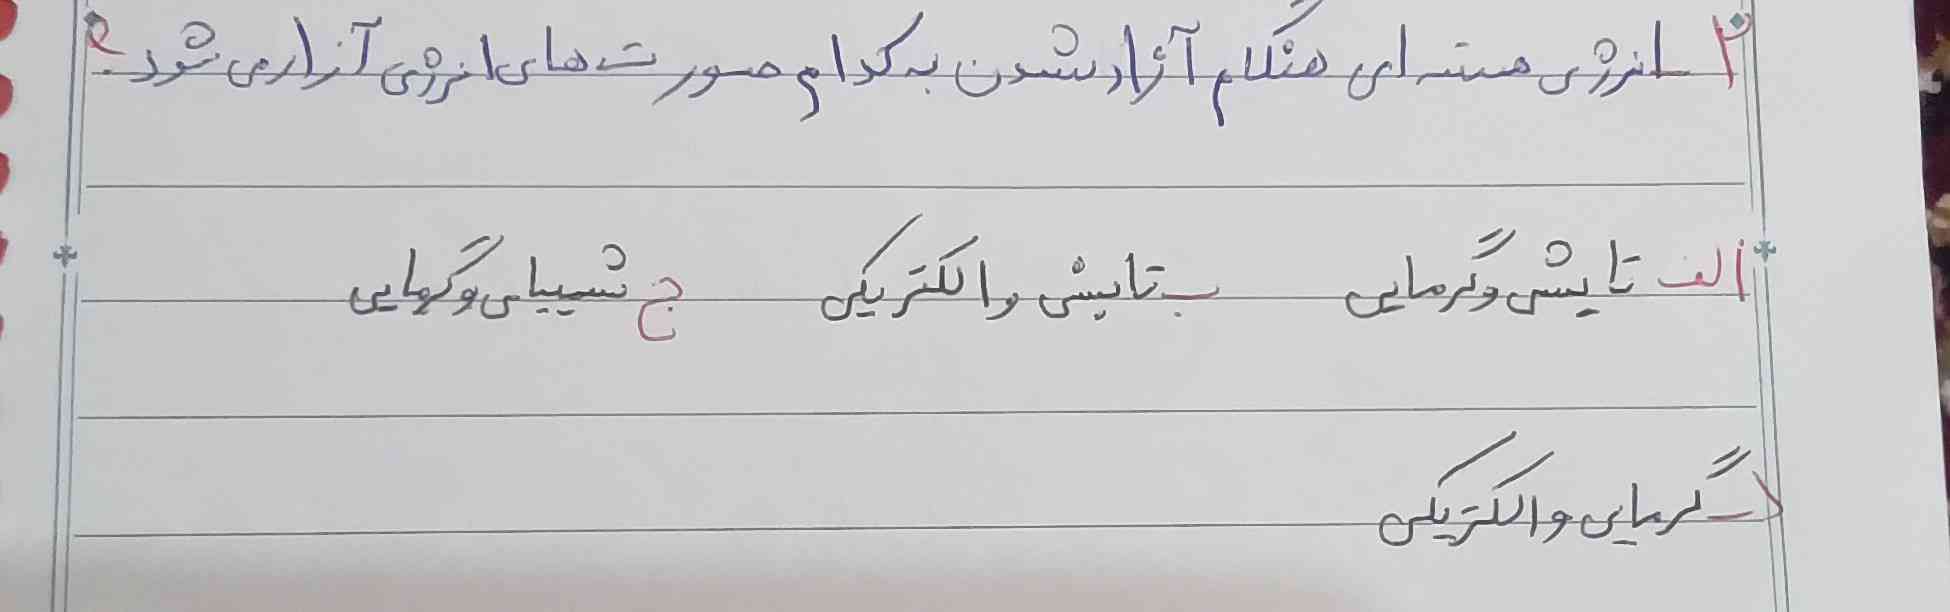 ۲_ انرژی هسته ای هنگام آزاد شدن به کدام صورت های انرژی آزاد می شود؟
الف تابشی و گرمایی ب تابشی و الکتریکی ج شیمیایی و گرمایی
د_ گرمایی و الکتریکی